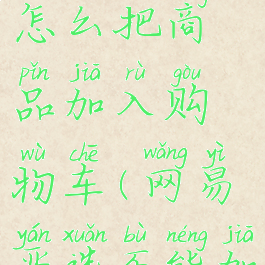 怎么把商
pǐn jiā rù gòu
品加入购
wù chē wǎng yì
物车(网易
yán xuǎn bù néng jiā
严选不能加